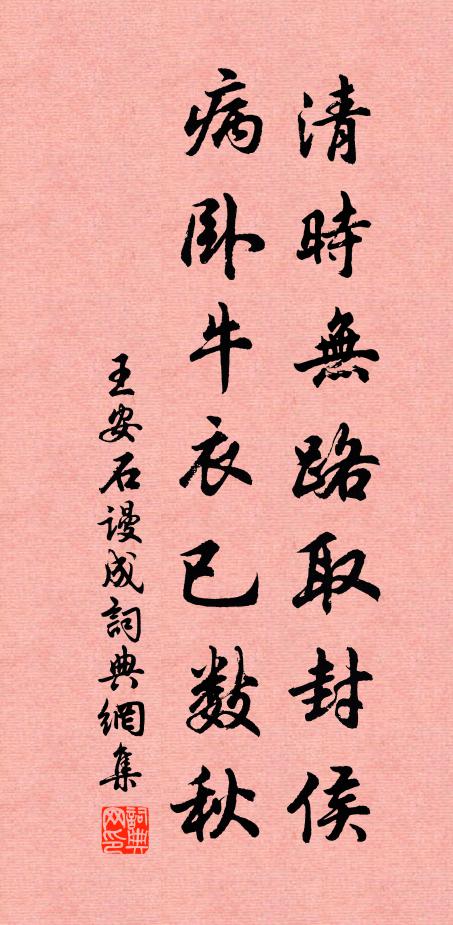 清時無路取封侯
病卧牛衣已数秋
王安石谩成詞典網集
詞典网印